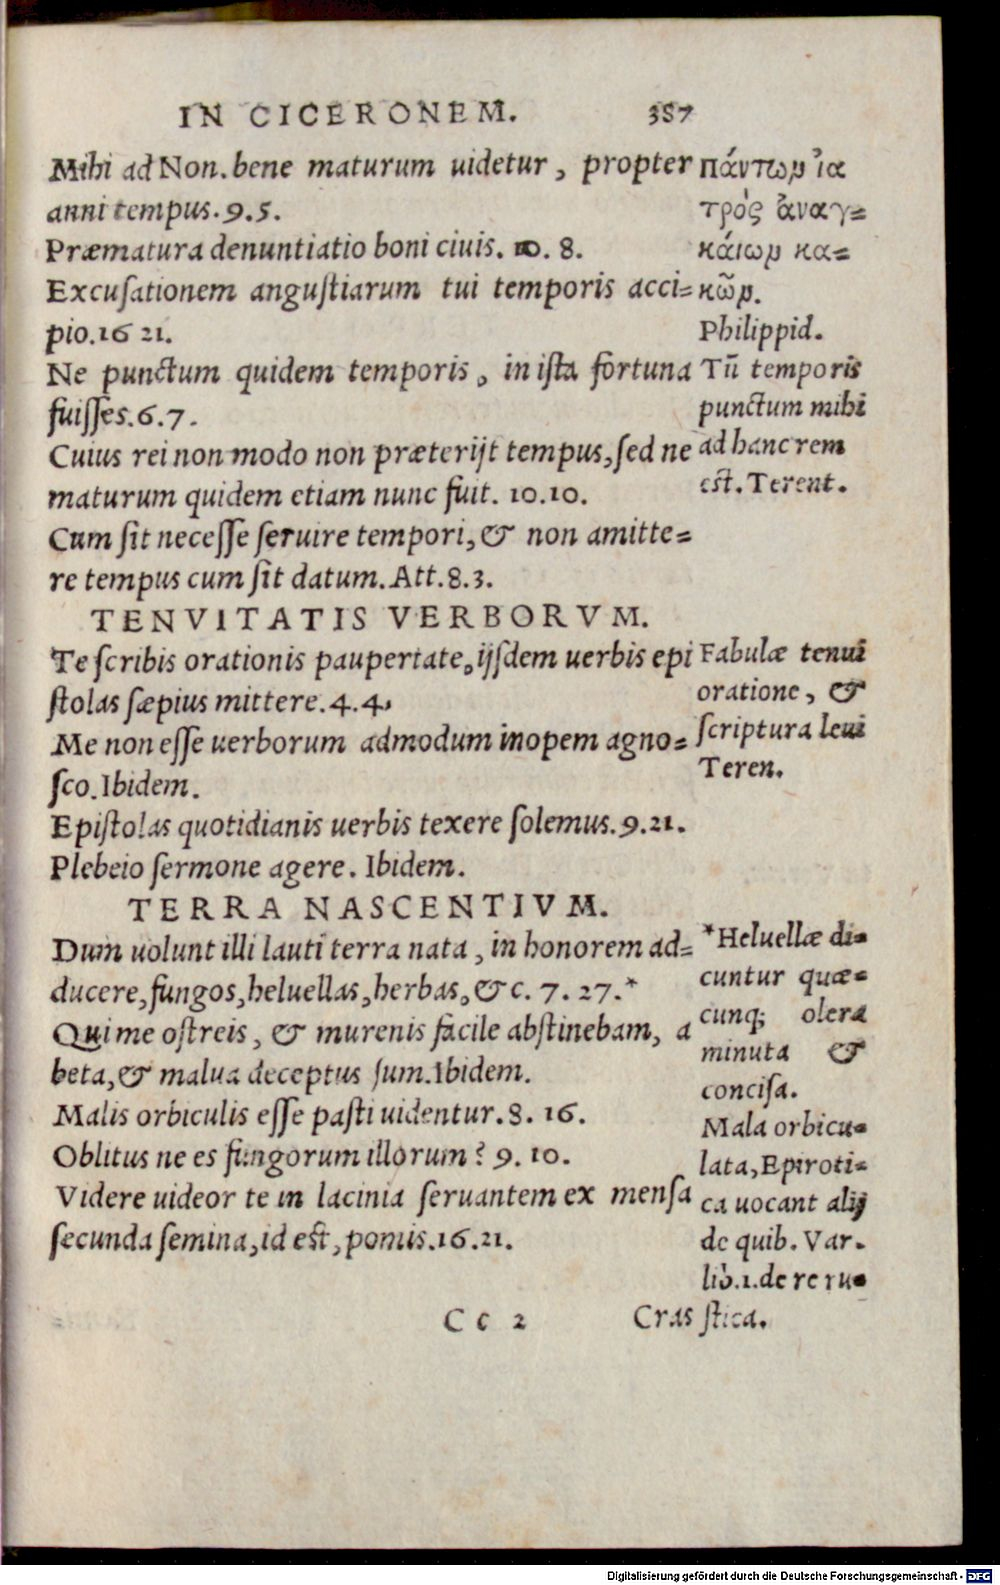 IN CICERONEM. 387
Mihi ad Non. bene maturum uidetur, propter
anni tempus. 9. 5.
Præmatura denuntiatio boni ciuis. 10. 8.
Excuſationem anguſtiarum tui temporis acci=
pio. 16 21.
Ne punctum quidem temporis, in iſta fortuna
fuiſſes. 6. 7.
Cuius rei non modo non præterijt tempus, ſed ne
maturum quidem etiam nunc fuit. 10. 10.
Cum ſit neceſſe ſeruire tempori, & non amitte=
re tempus cum ſit datum. Att. 8. 3.
TENVITATIS VERBORVM.
Te ſcribis orationis paupertate, ijſdem uerbis epi
ſtolas ſæpius mittere. 4. 4,
Me non eſſe uerborum admodum inopem agno=
ſco. Ibidem.
Epiſtolas quotidianis uerbis texere ſolemus. 9. 21.
Plebeio ſermone agere. Ibidem.
TERRA NASCENTIVM.
Dum uolunt illi lauti terra nata, in honorem ad=
ducere, fungos, heluellas, herbas, &c. 7. 27.*
Qui me oſtreis, & murenis facile abſtinebam, a
beta, & malua deceptus ſum. Ibidem.
Malis orbiculis eſſe paſti uidentur. 8. 16.
Oblitus ne es fungorum illorum? 9. 10.
Videre uideor te in lacinia ſeruantem ex menſa
ſecunda ſemina, id eſt, pomis. 16. 21.
πάντων ἰα
τρὸς ἀναγ=
κάιων κα=
κῶν.
Philippid.
Tū temporis
punctum mihi
ad hanc rem
eſt. Terent.
Fabulæ tenui
oratione, &
ſcriptura leui
Teren.
*Heluellæ di=
cuntur quæ=
cunq; olera
minuta &
conciſa.
Mala orbicu=
lata, Epiroti=
ca uocant alij
de quib. Var.
lib. 1. de re ru=
ſtica.
Cc 2 Cras
Digitalisierung gefördert durch die Deutsche Forschungsgemeinschaft - DFG